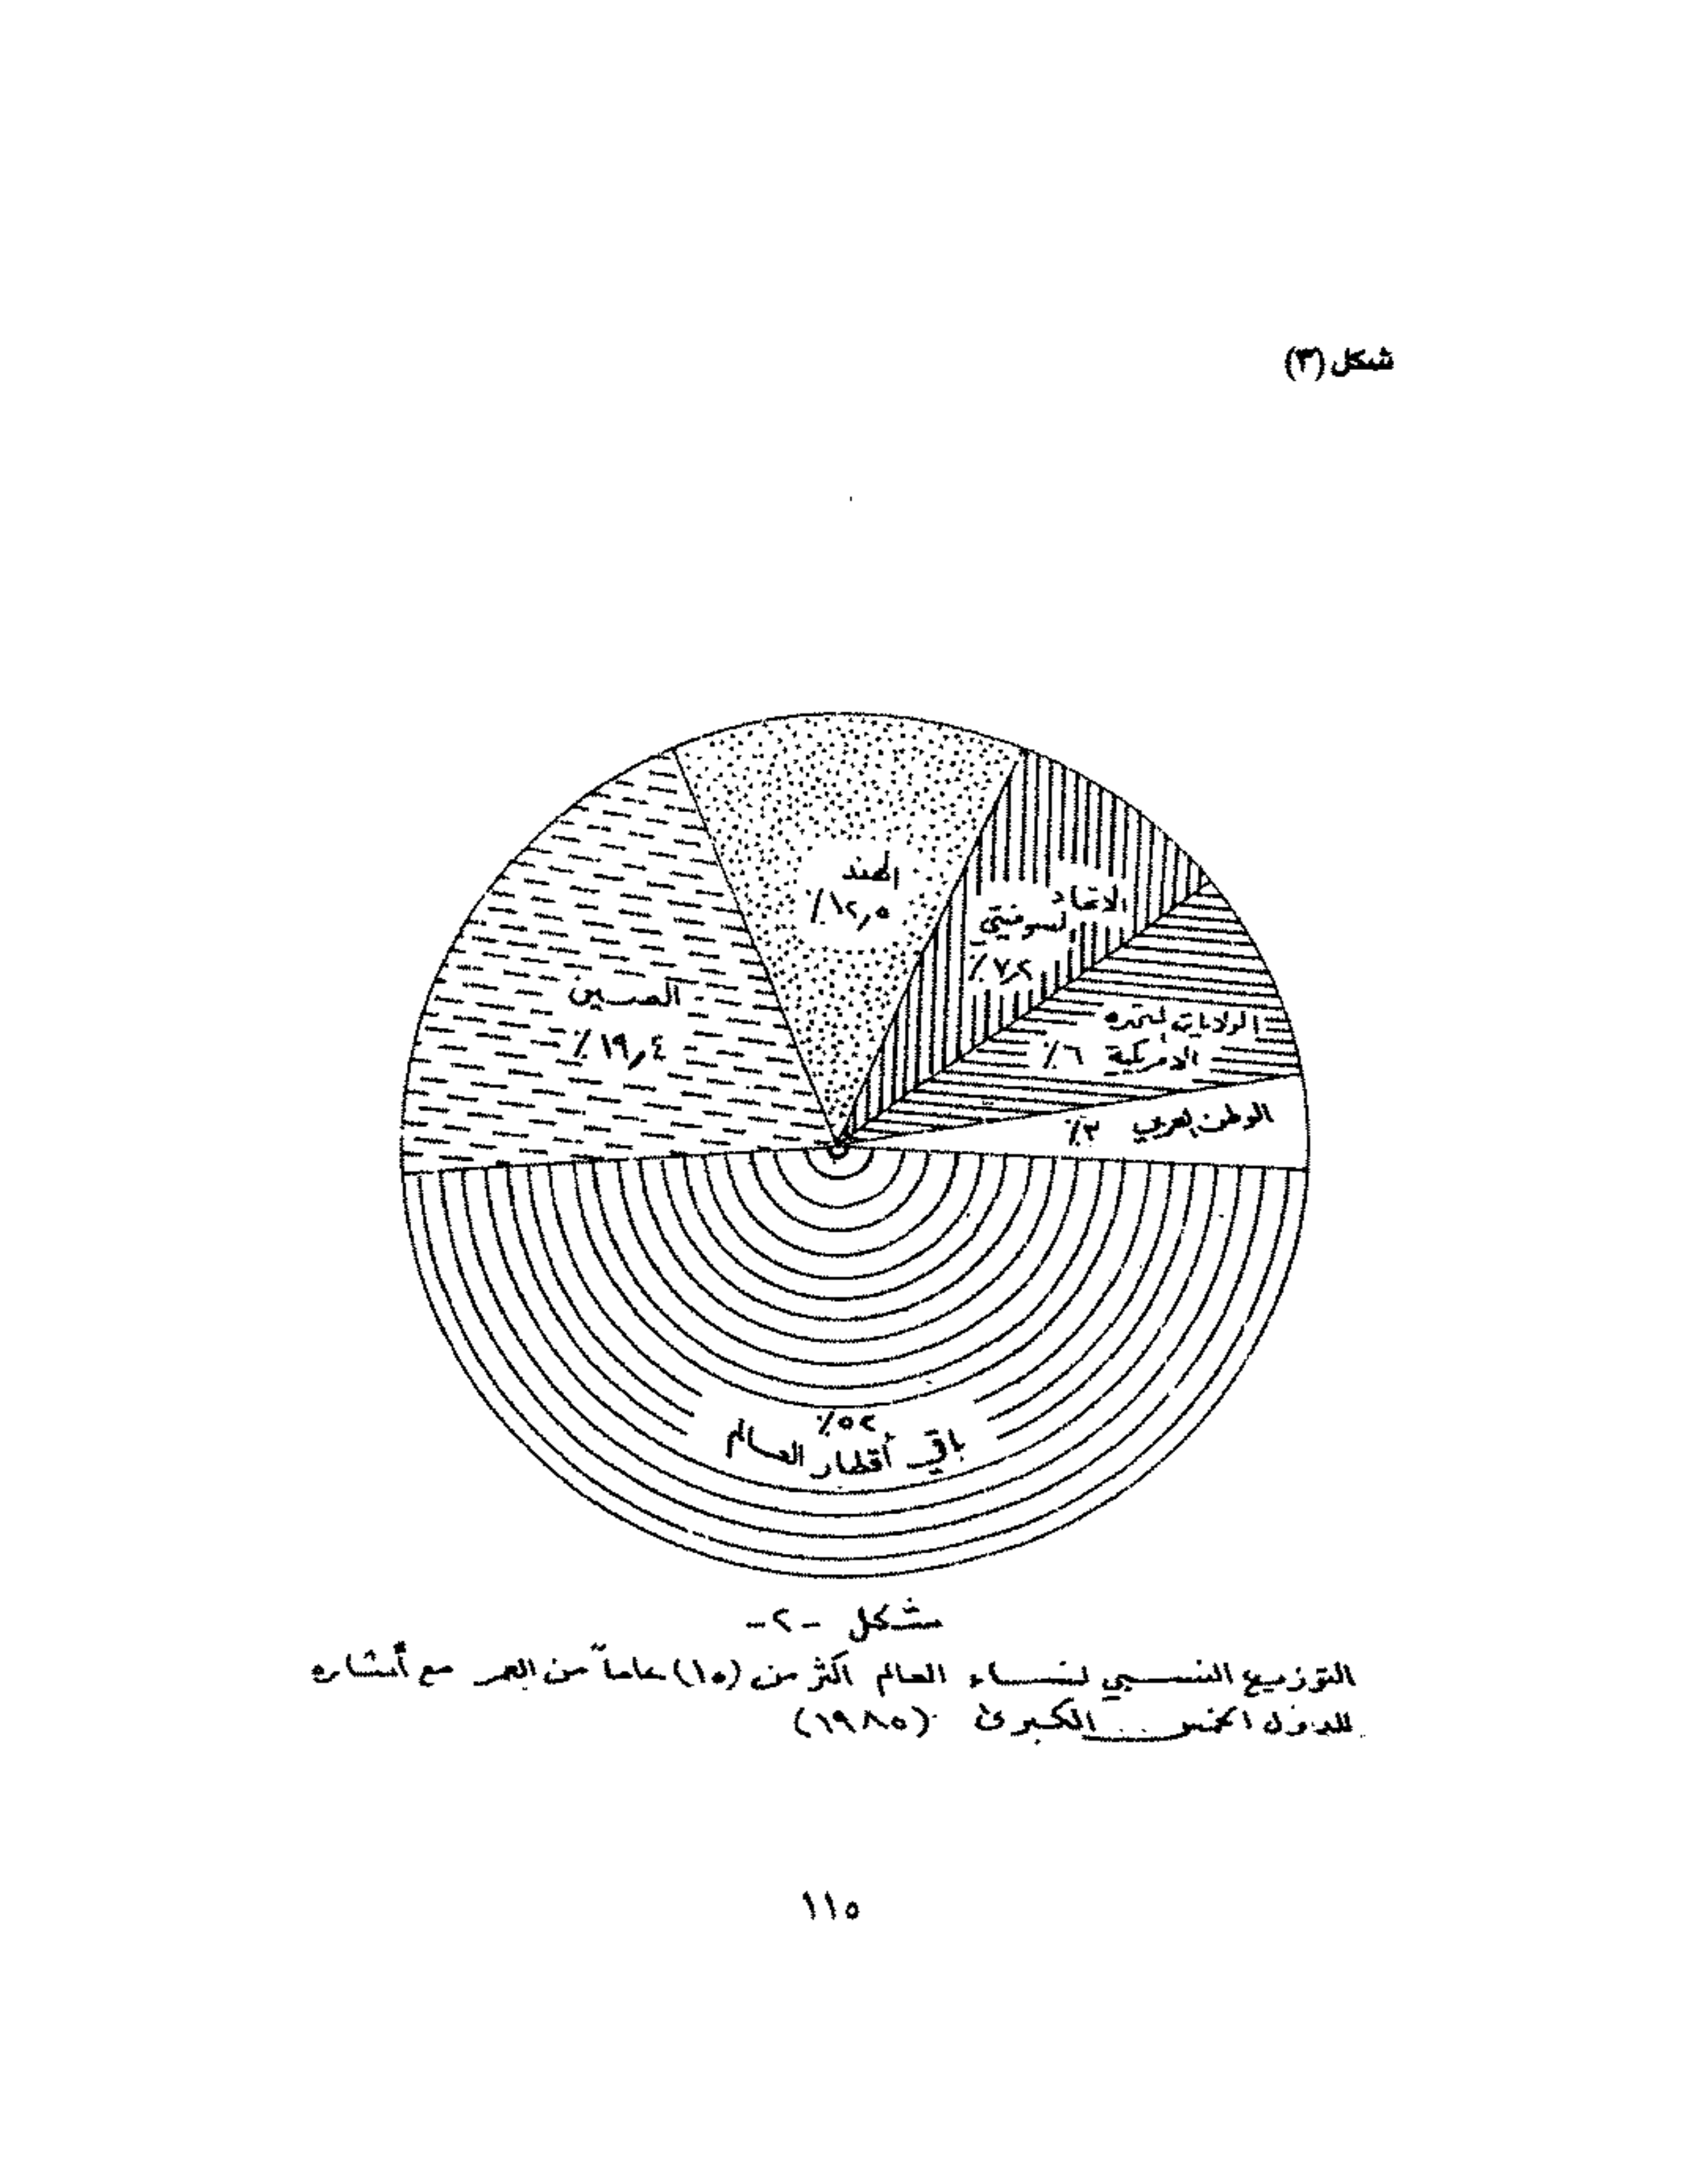 شكل (٣)
الهند
١٢,٥٪
الاتحاد
السوفيتي
٧,٢٪
الصين
١٩,٤٪
الولايات المتحدة
الامريكية ٦٪
الوطن العربي ٣٪
٥٢٪
باقي أقطار العالم
شكل -٢-
التوزيع النسبي لنساء العالم اكثر من (١٥) عاماً من العمر مع أشاره
للدول الخمس الكبرى (١٩٨٥)
١١٥